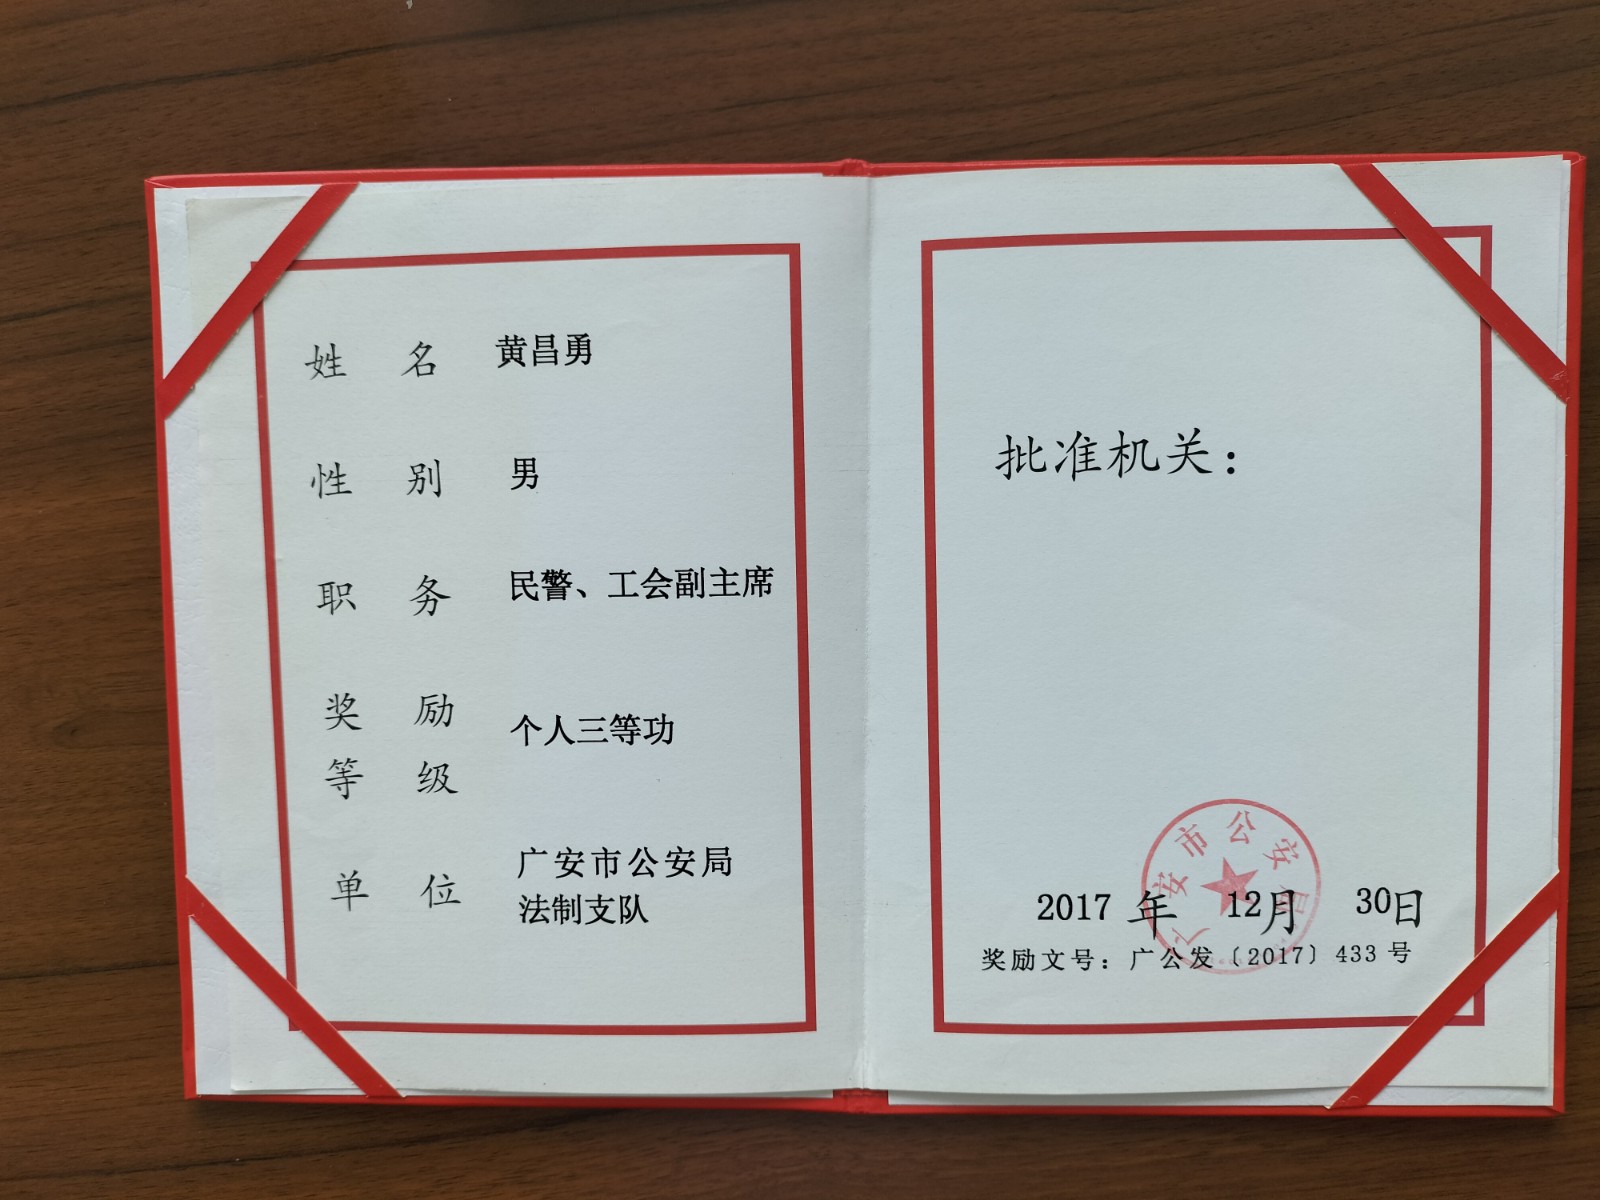 姓 名 黄昌勇
性 别 男
职 务 民警、工会副主席
奖 励
等 级 个人三等功
单 位 广安市公安局
法制支队
批准机关：
广安市公安局
2017 年 12月 30日
奖励文号：广公发〔2017〕433 号